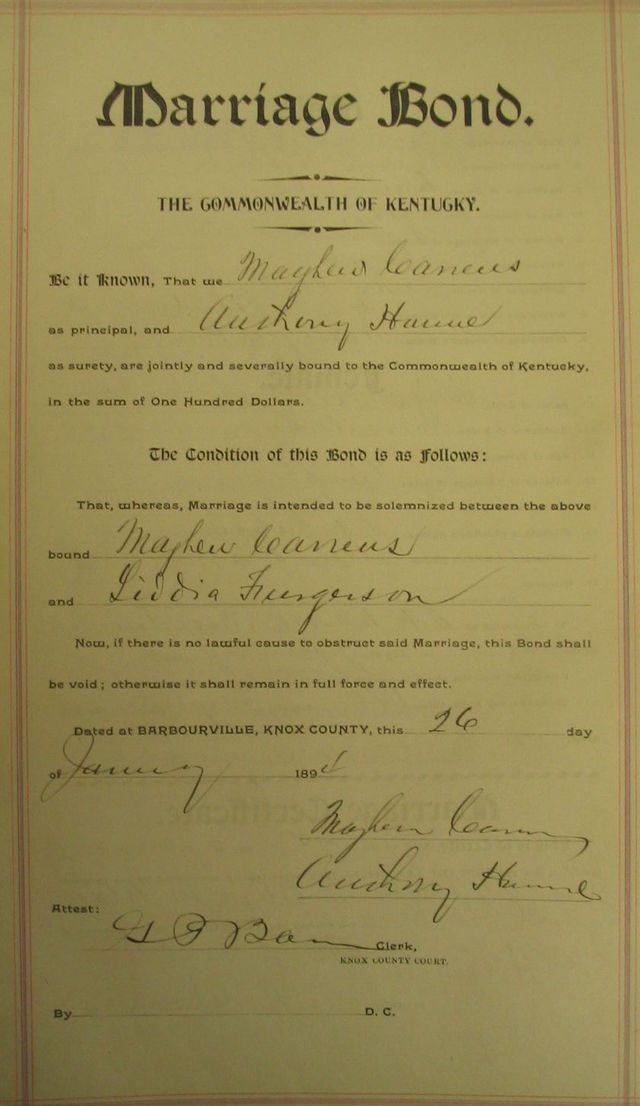 Marriage Bond.
THE COMMONWEALTH OF KENTUCKY.
Be it Known, That we Mayhew Carreus
as principal, and Anthony
as surety, are jointly and severally bound to the Commonwealth of Kentucky,
in the sum of One Hundred Dollars.
The Condition of this Bond is as Follows:
That, whereas, Marriage is intended to be solemnized between the above
bound Mayhew Carreus
and Liddia Furgerson
Now, if there is no lawful cause to obstruct said Marriage, this Bond shall
be void; otherwise it shall remain in full force and effect.
Dated at BARBOURVILLE, KNOX COUNTY, this 26 day
of 189
Mayhew
Anthony
Attest:
Clerk,
KNOX COUNTY COURT.
By D. C.